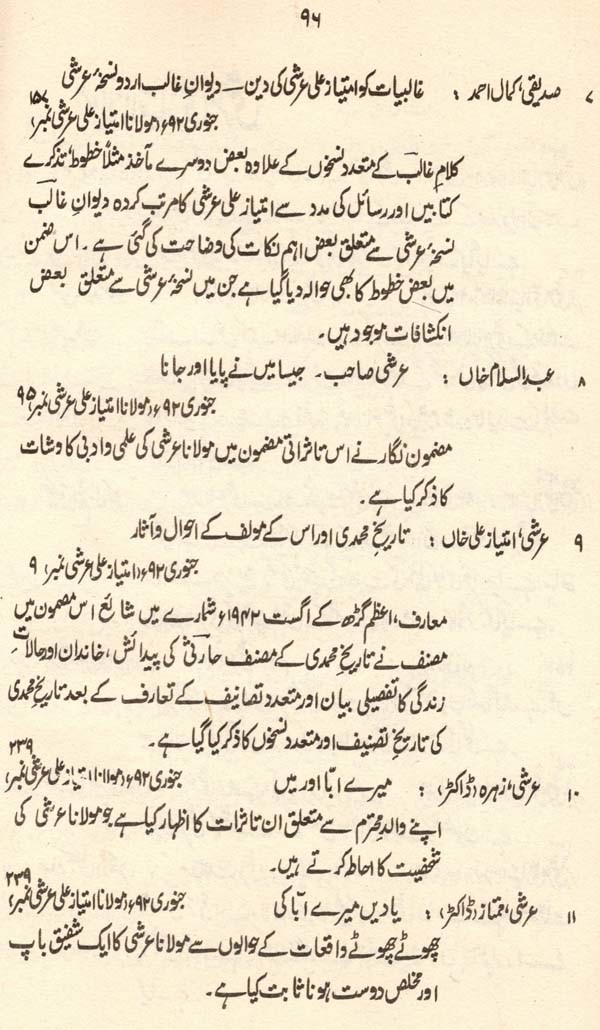 ۹۶
۷ صدیقی، کمال احمد : غالبیات کو امتیاز علی عرشی کی دین — دیوانِ غالب اردو نسخۂ عرشی
جنوری ۹۲ء (مولانا امتیاز علی عرشی نمبر)
کلامِ غالب کے متعدد نسخوں کے علاوہ بعض دوسرے مآخذ مثلاً خطوط، تذکرے
کتابیں اور رسائل کی مدد سے امتیاز علی عرشی کا مرتب کردہ دیوانِ غالب
نسخۂ عرشی سے متعلق بعض اہم نکات کی وضاحت کی گئی ہے۔ اس ضمن
میں بعض خطوط کا بھی حوالہ دیا گیا ہے جن میں نسخۂ عرشی سے متعلق بعض
انکشافات موجود ہیں۔
۸ عبدالسلام خاں : عرشی صاحب۔ جیسا میں نے پایا اور جانا
جنوری ۹۲ء (مولانا امتیاز علی عرشی نمبر) ۹۵
مضمون نگار نے اس تاثراتی مضمون میں مولانا عرشی کی علمی و ادبی کاوشات
کا ذکر کیا ہے۔
۹ عرشی، امتیاز علی خاں : تاریخِ محمدی اور اس کے مولف کے احوال و آثار
جنوری ۹۲ء (امتیاز علی عرشی نمبر) ۹
معارف، اعظم گڑھ کے اگست ۱۹۴۲ء شمارے میں شائع اس مضمون میں
مصنف نے تاریخِ محمدی کے مصنف حارثی کی پیدائش، خاندان اور حالاتِ
زندگی کا تفصیلی بیان اور متعدد تصانیف کے تعارف کے بعد تاریخِ محمدی
کی تاریخِ تصنیف اور متعدد نسخوں کا ذکر کیا گیا ہے۔
۱۰ عرشی، زہرہ (ڈاکٹر) : میرے ابّا اور میں جنوری ۹۲ء (مولانا امتیاز علی عرشی نمبر) ۲۳۹
اپنے والدِ محترم سے متعلق ان تاثرات کا اظہار کیا ہے جو مولانا عرشی کی
شخصیت کا احاطہ کرتے ہیں۔
۱۱ عرشی، ممتاز (ڈاکٹر) : یادیں میرے ابّا کی جنوری ۹۲ء (مولانا امتیاز علی عرشی نمبر) ۲۳۹
چھوٹے چھوٹے واقعات کے حوالوں سے مولانا عرشی کا ایک شفیق باپ
اور مخلص دوست ہونا ثابت کیا ہے۔